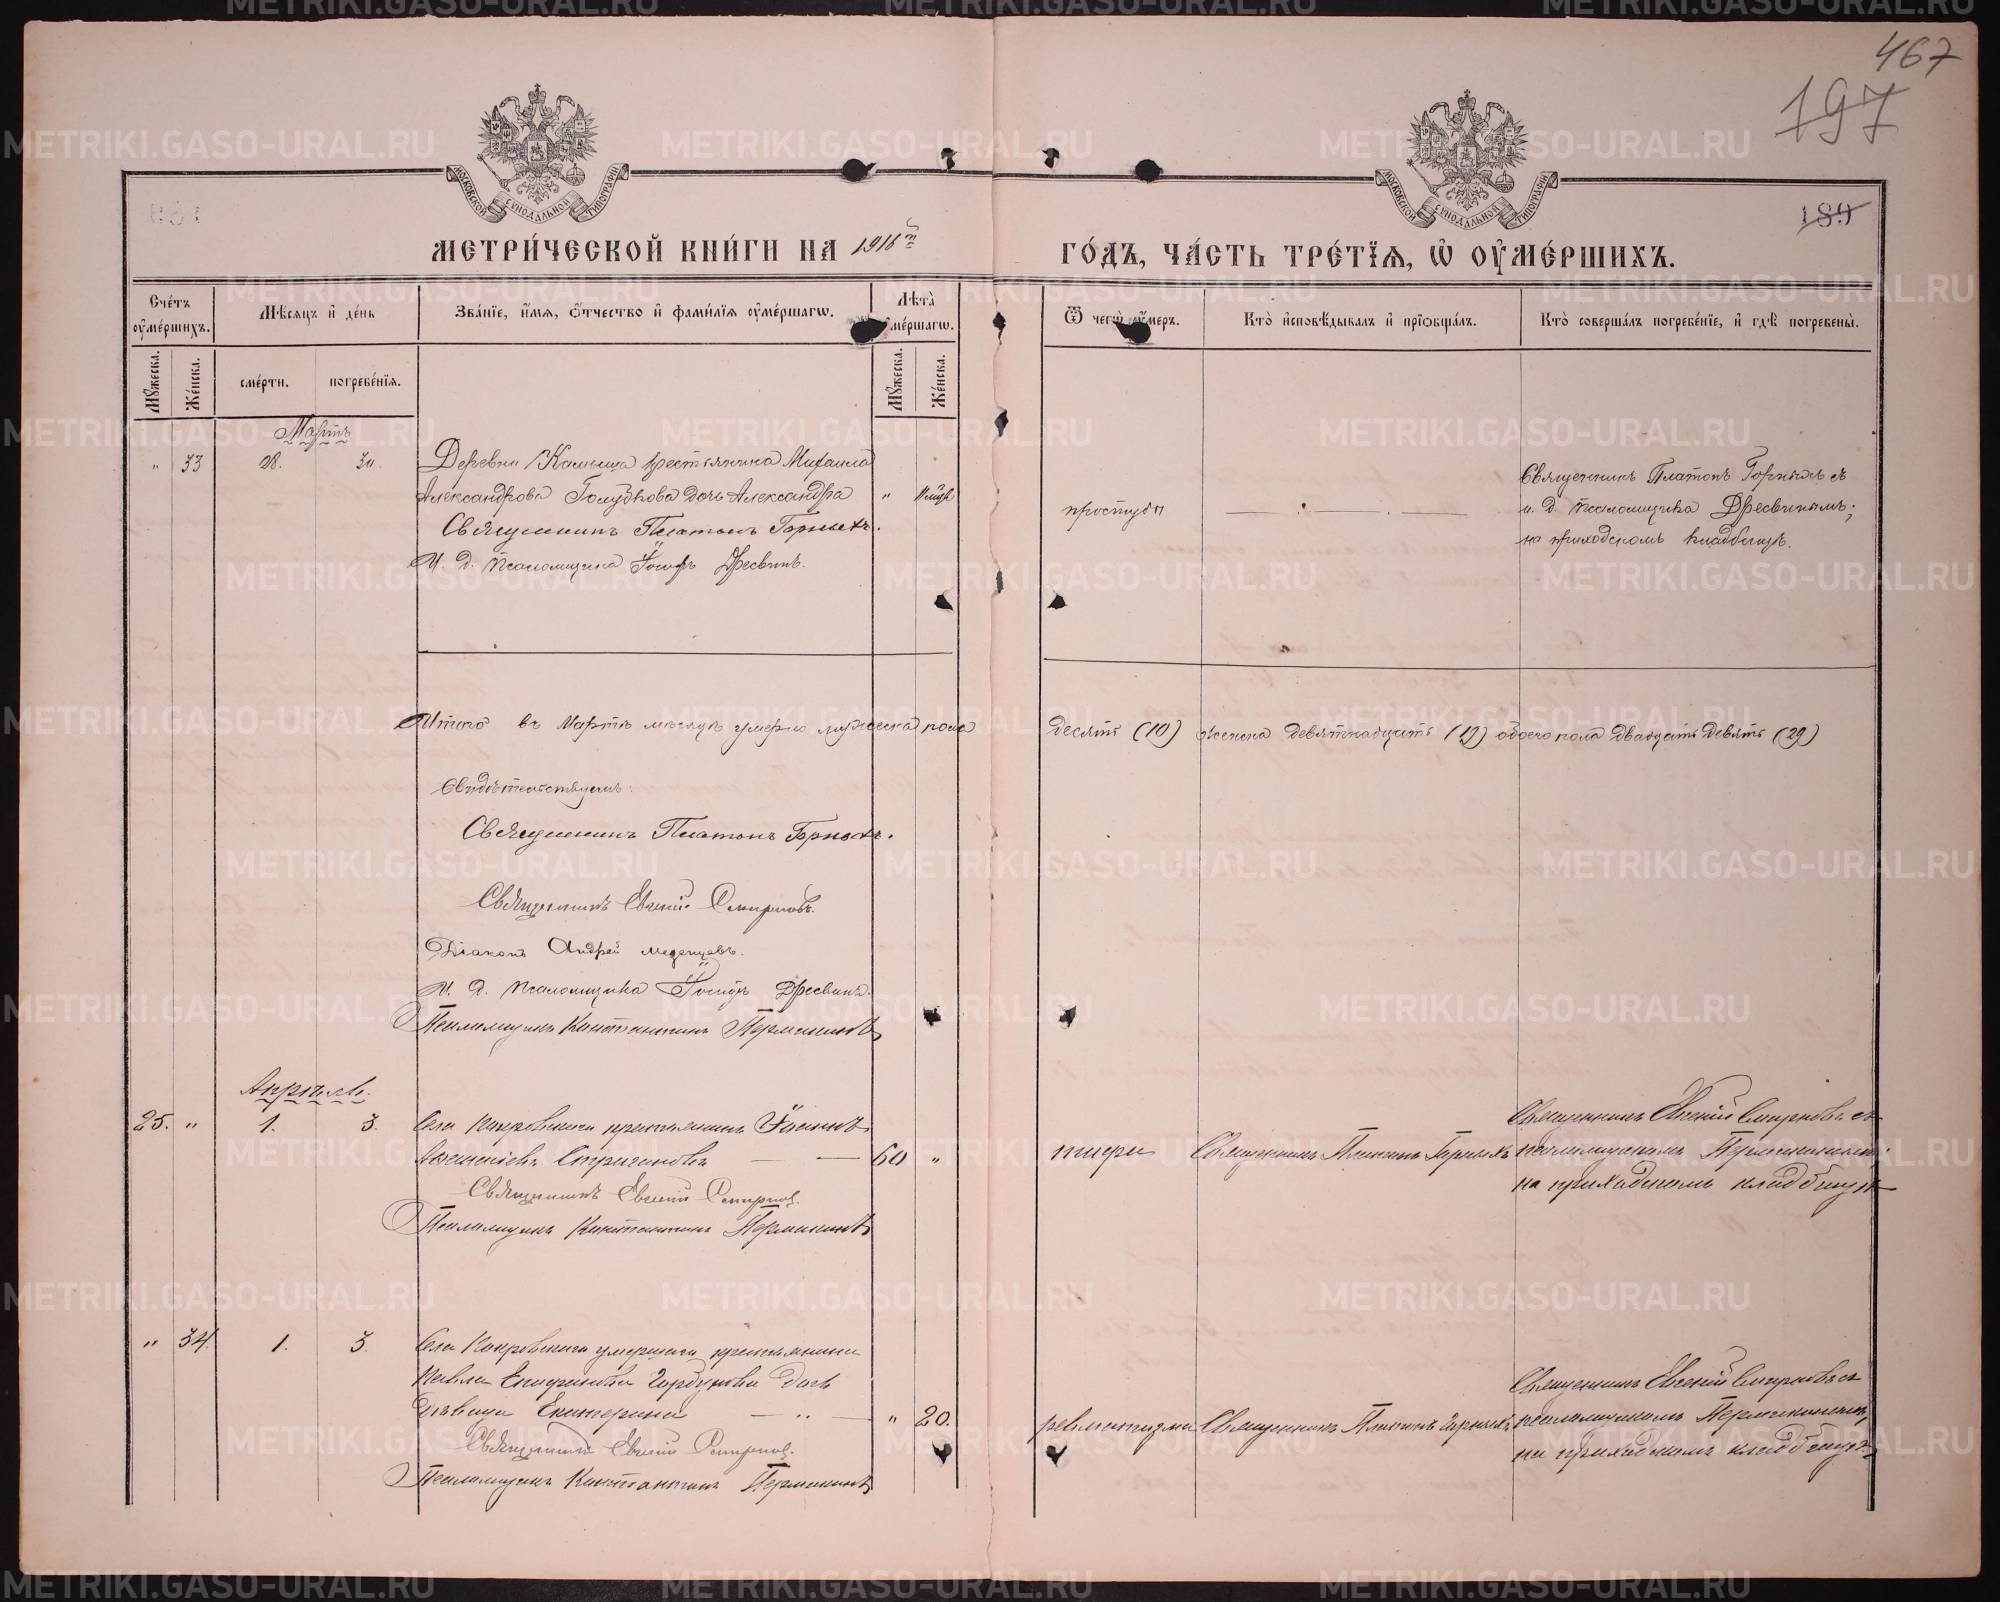 467
197
189
МОСКОВСКОЙ СУНОДАЛЬНОЙ ТИПОГРАФІИ
МОСКОВСКОЙ СУНОДАЛЬНОЙ ТИПОГРАФІИ
МЕТРИ́ЧЕСКОЙ КНИ́ГИ НА 1916 й
ГО́ДЪ, ЧА́СТЬ ТРЕ́ТІѦ, Ѡ ОУМЕ́РШИХЪ.
Сче́тъ оуме́ршихъ.
Мѣ́сяцъ и де́нь
Зва́ніе, и́мя, о́тчество и фами́лія оуме́ршагѡ.
Лѣта̀ оуме́ршагѡ.
Ѿ чегѡ̀ оу́меръ.
Кто̀ и҆сповѣ́дывалъ и прїобща́лъ.
Кто̀ соверша́лъ погребе́ніе, и гдѣ̀ погребены̀.
Мꙋ́жеска.
Же́нска.
сме́рти.
погребе́нія.
Мꙋ́жеска.
Же́нска.
Мартъ
" 33 28. 30. Деревни Камыша крестьянина Михаила
Александрова Голубкова дочь Александра "
Священникъ Платонъ Горныхъ.
И. д. псаломщика Іосифъ Дресвинъ.
простуды
Священникъ Платонъ Горныхъ съ
и. д. псаломщика Дресвинымъ;
на приходскомъ кладбищѣ.
Итого въ Мартѣ мѣсяцѣ умерло мужеска пола десять (10) женска девятнадцать (19) обоего пола двадцать девять (29)
Свидѣтельствуемъ:
Священникъ Платонъ Горныхъ.
Священникъ Евгеній Смирновъ.
Діаконъ Андрей
И. д. псаломщика Іосифъ Дресвинъ.
Псаломщикъ Константинъ Пермикинъ
Апрѣль.
25. " 1. 3. Села Покровскаго крестьянинъ Іоаннъ
Алексіевъ Стригановъ 60 "
Священникъ Евгеній Смирнов.
Псаломщикъ Константинъ Пермикинъ
тифа
Священникъ Платонъ Горныхъ
Священникъ Евгеній Смирновъ съ
псаломщикомъ Пермикинымъ;
на приходскомъ кладбищѣ
" 34. 1. 3. Села Покровскаго умершаго крестьянина
Павла Горбунова дочь
дѣвица Екатерина " 20.
Священникъ Евгеній Смирнов.
Псаломщикъ Константинъ Пермикинъ
ревматизма
Священникъ Платонъ Горныхъ
Священникъ Евгеній Смирновъ съ
псаломщикомъ Пермикинымъ,
на приходскомъ кладбищѣ
METRIKI.GASO-URAL.RU